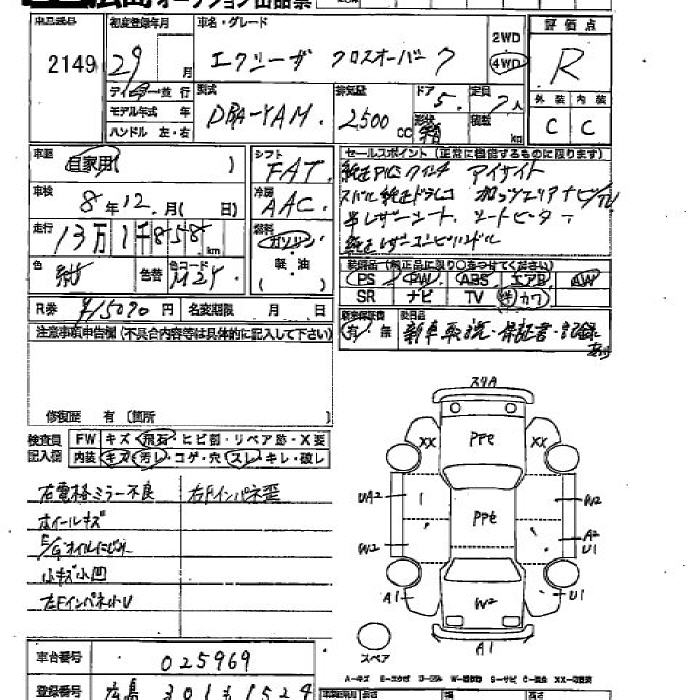 2149
初度登録年月
29 月
車名・グレード
エクシーガ クロスオーバー7
2WD
4WD
評価点
R
外装 内装
C C
ディーラー 並行
モデル年式 年
ハンドル 左・右
型式
DBA-YAM
排気量
2500 cc
ドア
5
形状
定員
7人
積載
kg
車歴
自家用( )
シフト
FAT
セールスポイント(正常に機能するものに限ります)
純正アルミ17インチ アイサイト
スバル純正ドラレコ カロッツェリアナビ/TV
半レザーシート、シートヒーター
純正レザーコンビハンドル
車検
8年12月( 日)
冷房
AAC
走行
13万1千858km
燃料
ガソリン
軽・油
色
紺
色替
色コード
M2Y
装備品(純正品に限り○をつけてください)
PS PW ABS エアB AW
SR ナビ TV 革 カワ
R券 ¥15090円 名変期限 月 日
新車保証書
有 無
欠品
新車取説・保証書・記録
あり
注意事項申告欄(不具合内容等は具体的に記入して下さい)
修復歴 有(箇所
検査員
記入欄
FW キズ・飛石・ヒビ割・リペア跡・X要
内装 キズ・汚レ・コゲ・穴・スレ・キレ・破レ
右電格ミラー不良 右Fインパネ歪
ホイールキズ
E/Gオイルにじみ
小キズ小凹
左Fインパネ小U
スリA
PPく
XX XX
UA2 W2
PPく
A2
U1
W2
A1 U1
W2
A1
スペア
車台番号 025969
登録番号 広島 301 も 1524